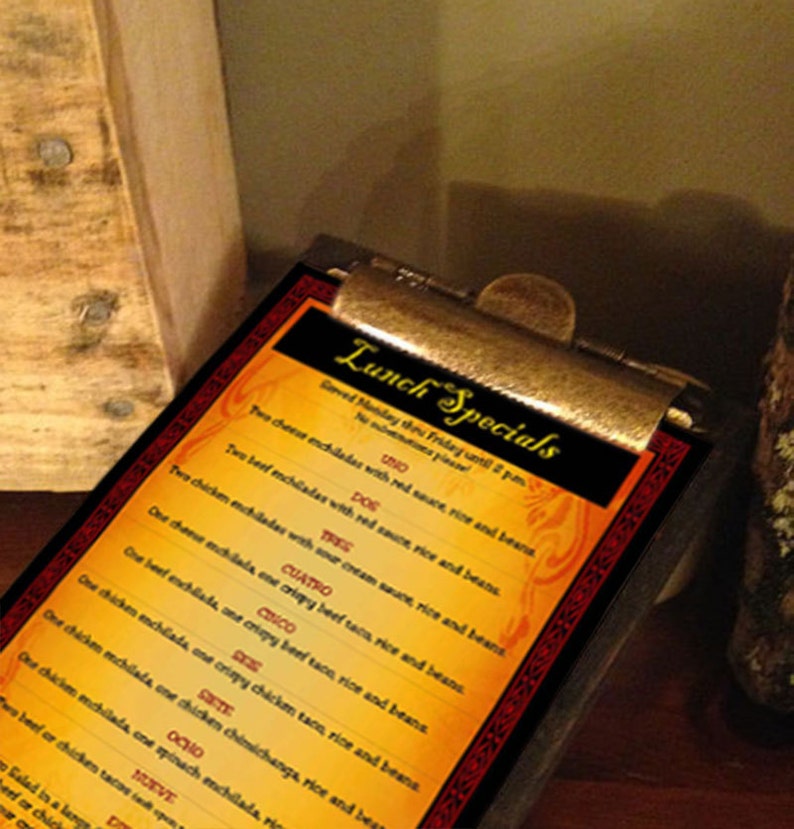 Lunch Specials
Served Monday thru Friday until 2 p.m.
No substitutions please!
UNO
Two cheese enchiladas with red sauce, rice and beans.
DOS
Two beef enchiladas with red sauce, rice and beans.
TRES
Two chicken enchiladas with sour cream sauce, rice and beans.
CUATRO
One cheese enchilada, one crispy beef taco, rice and beans.
CINCO
One beef enchilada, one crispy beef taco, rice and beans.
SEIS
One chicken enchilada, one crispy chicken taco, rice and beans.
SIETE
One chicken enchilada, one chicken chimichanga, rice and beans.
OCHO
One chicken enchilada, one spinach enchilada, rice
NUEVE
Two beef or chicken tacos
Salad in a large
beef or